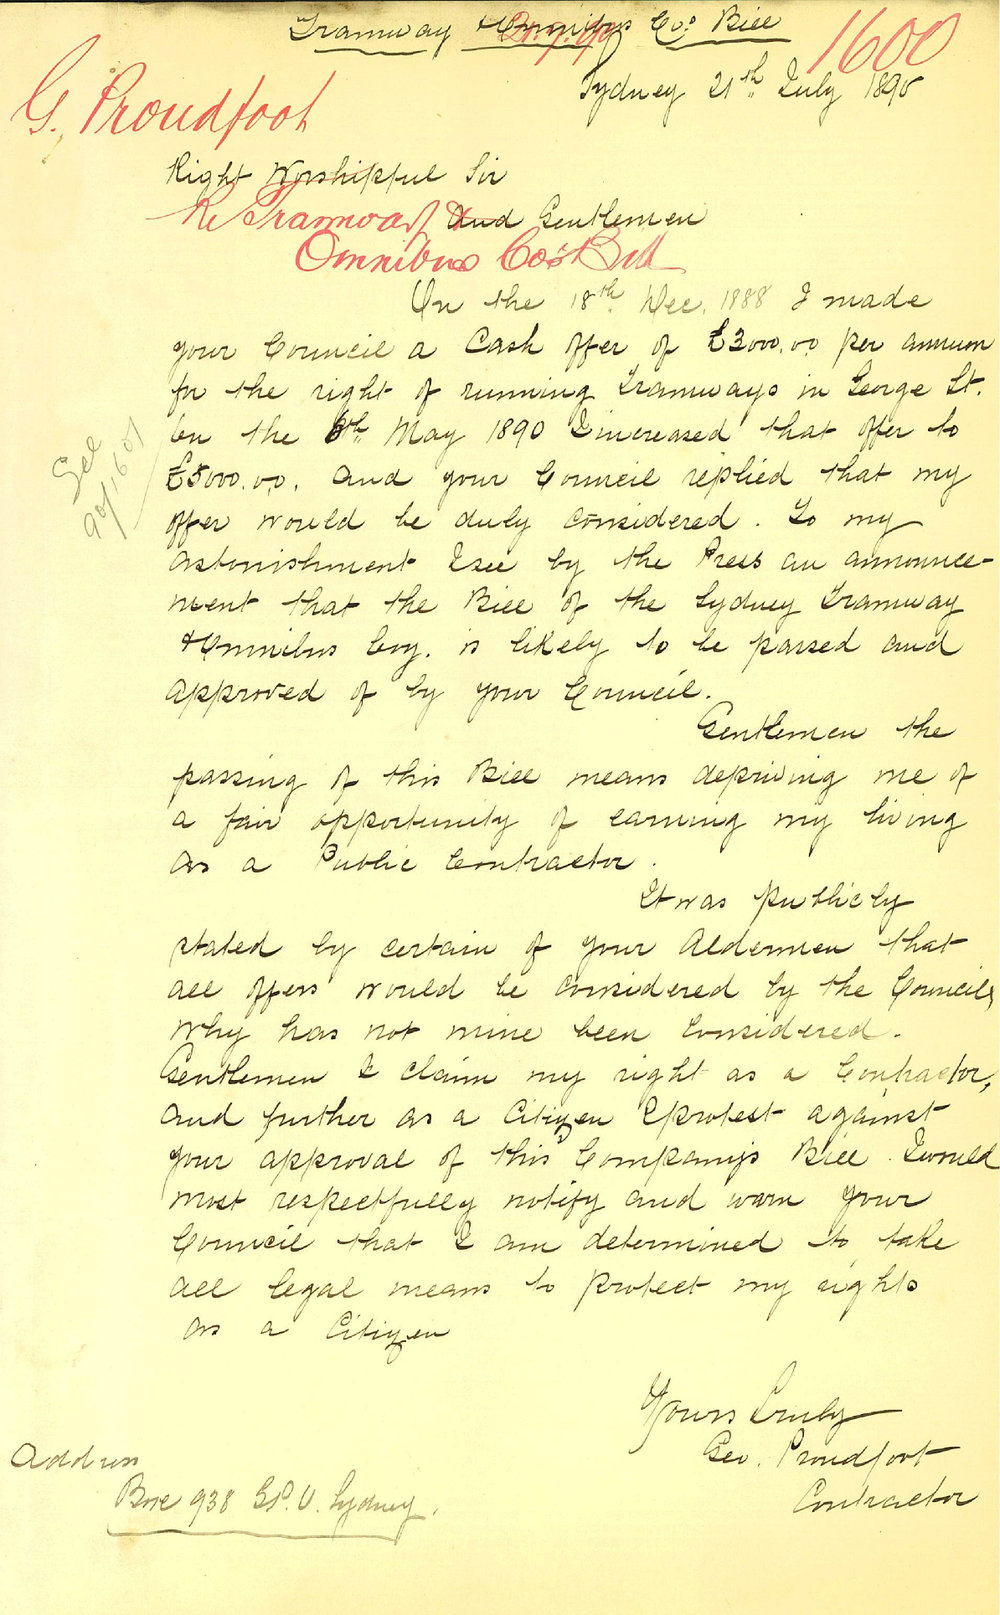 Tramway & Omnibus Co's Bill
1600
Sydney 21th July 1890
G. Proudfoot
Right Worshipful Sir
and Gentlemen
Re Tramway &
Omnibus Co's Bill
On the 18th Dec. 1888 I made
your Council a Cash offer of £3000.0.0 per annum
for the right of running Tramways in George St.
on the 8th May 1890 I increased that offer to
£5000.0.0. and your Council replied that my
offer would be duly considered. To my
astonishment I see by the Press an announce-
ment that the Bill of the Sydney Tramway
& Omnibus Coy. is likely to be passed and
approved of by your Council.
See
90/1601
Gentlemen the
passing of this Bill means depriving me of
a fair opportunity of earning my living
as a Public Contractor.
It was publicly
stated by certain of your Aldermen that
all offers would be considered by the Council,
why has not mine been considered.
Gentlemen I claim my right as a Contractor,
and further as a Citizen I protest against
your approval of this Company's Bill. I would
most respectfully notify and warn your
Council that I am determined to take
all legal means to protect my rights
as a Citizen
Yours Truly
Geo. Proudfoot
Contractor
Address
Box 938 G.P.O. Sydney.